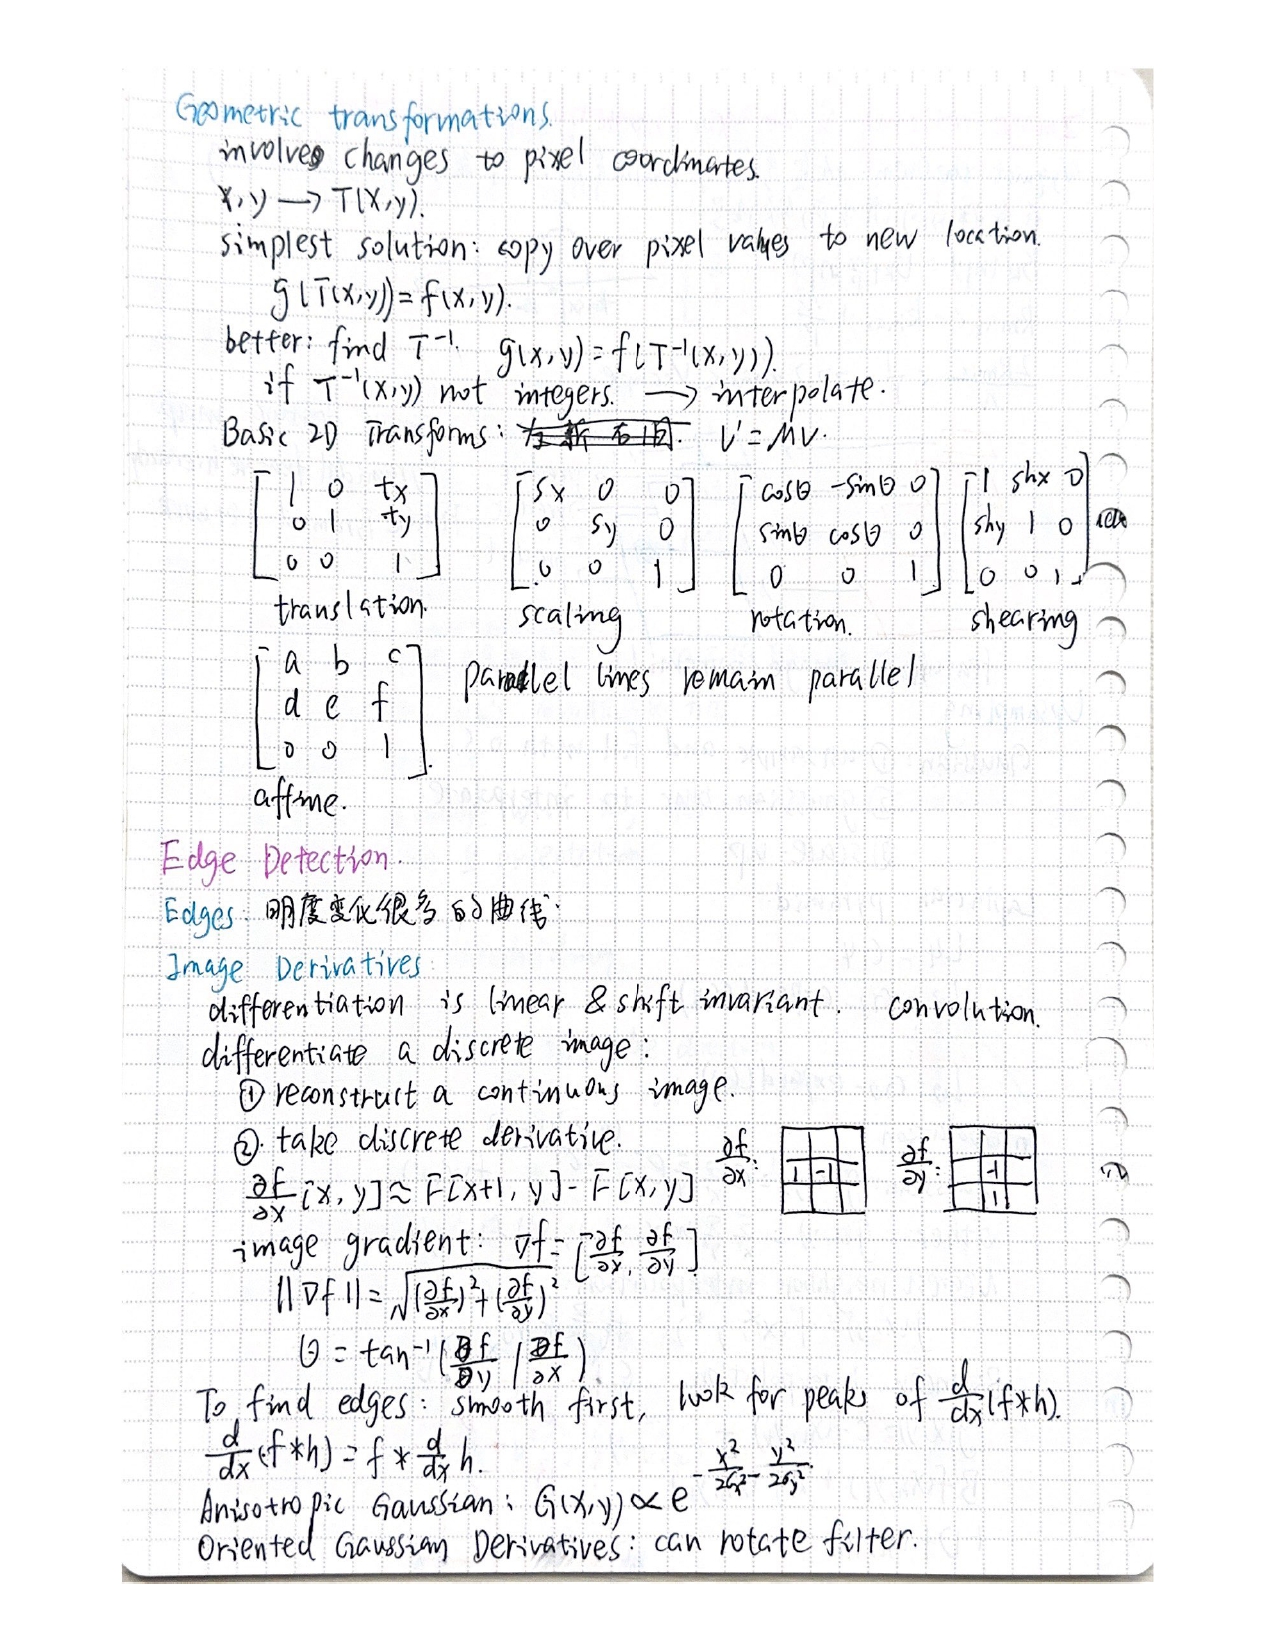 Geometric transformations.
involves changes to pixel coordinates.
x,y → T(x,y).
simplest solution: copy over pixel values to new location.
g(T(x,y)) = f(x,y).
better: find T⁻¹. g(x,y) = f(T⁻¹(x,y)).
if T⁻¹(x,y) not integers. → interpolate.
Basic 2D Transforms: V' = MV.
[1 0 tx] [sx 0 0] [cosθ -sinθ 0] [1 shx 0]
[0 1 ty] [0 sy 0] [sinθ cosθ 0] [shy 1 0]
[0 0 1] [0 0 1] [0 0 1] [0 0 1]
translation. scaling rotation. shearing
[a b c]
[d e f] parallel lines remain parallel
[0 0 1]
affine.
Edge Detection.
Edges: 明度变化很多的曲线.
Image Derivatives:
differentiation is linear & shift invariant. convolution.
differentiate a discrete image:
① reconstruct a continuous image.
②. take discrete derivative. ∂f/∂x: 1 -1 ∂f/∂y: -1 1
∂f/∂x [x, y] ≈ F[x+1, y] - F[x, y]
image gradient: ∇f = [∂f/∂x, ∂f/∂y]
||∇f|| = √((∂f/∂x)² + (∂f/∂y)²
θ = tan⁻¹(∂f/∂y / ∂f/∂x)
To find edges: smooth first, look for peaks of d/dx (f*h).
d/dx (f*h) = f * d/dx h.
Anisotropic Gaussian: G(x,y) ∝ e^(-x²/2σx² - y²/2σy²)
Oriented Gaussian Derivatives: can rotate filter.